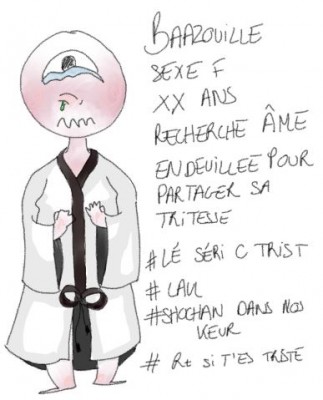 BAAZOUILLE
SEXE F
XX ANS
RECHERCHE ÂME
ENDEUILLEE POUR
PARTAGER SA
TRITESSE
# LÉ SÉRI C TRIST
# LAUL
# SHOCHAN DANS NOS
KEUR
# Rt si T'ES TRISTE